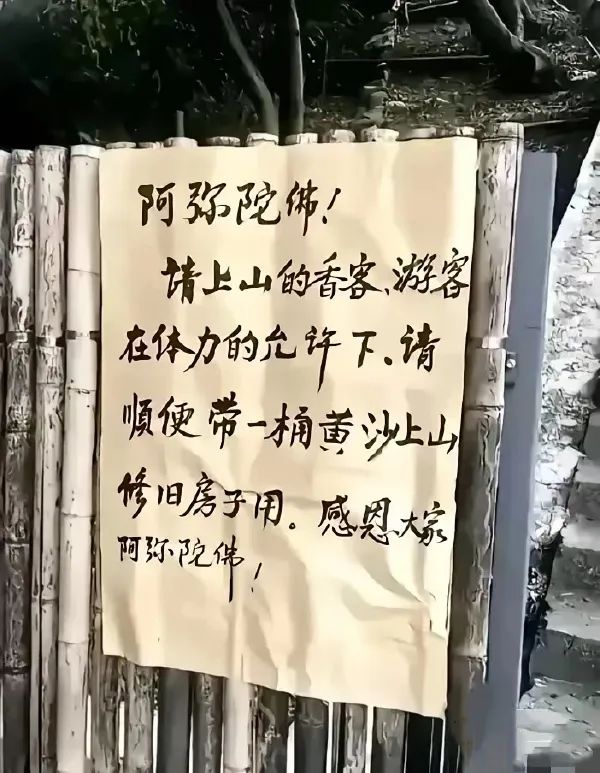 阿弥陀佛！
请上山的香客、游客
在体力的允许下、请
顺便带一桶黄沙上山
修旧房子用。感恩大家
阿弥陀佛！